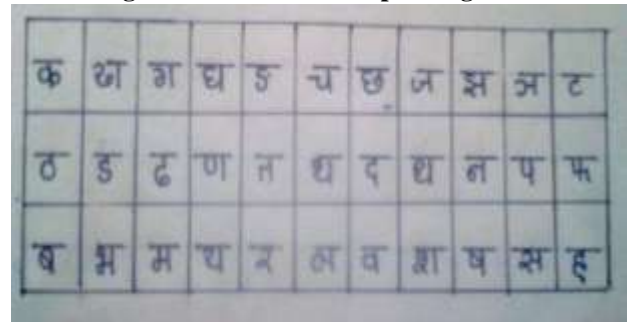 क ख ग घ ङ च छ ज झ ञ ट
ठ ड ढ ण त थ द ध न प फ
ब भ म य र ल व श ष स ह